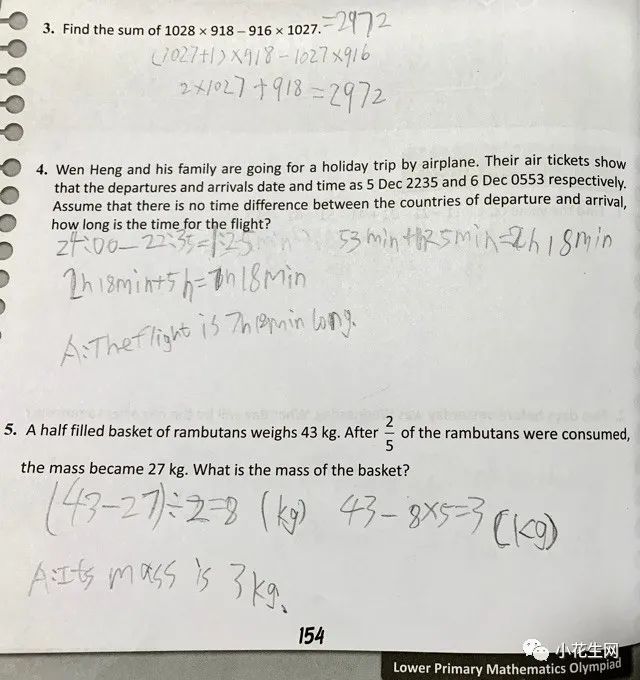 3. Find the sum of 1028 × 918 – 916 × 1027. =2972
(1027+1)×918-1027×916
2×1027+918=2972
4. Wen Heng and his family are going for a holiday trip by airplane. Their air tickets show
that the departures and arrivals date and time as 5 Dec 2235 and 6 Dec 0553 respectively.
Assume that there is no time difference between the countries of departure and arrival,
how long is the time for the flight?
24:00-22:35=1:25 53min+1h25min=2h18min
2h18min+5h=7h18min
A:The flight is 7h18min long.
5. A half filled basket of rambutans weighs 43 kg. After 2/5 of the rambutans were consumed,
the mass became 27 kg. What is the mass of the basket?
(43-27)÷2=8 (kg) 43-8×5=3 (kg)
A:Its mass is 3kg.
154
小花生网
Lower Primary Mathematics Olympiad